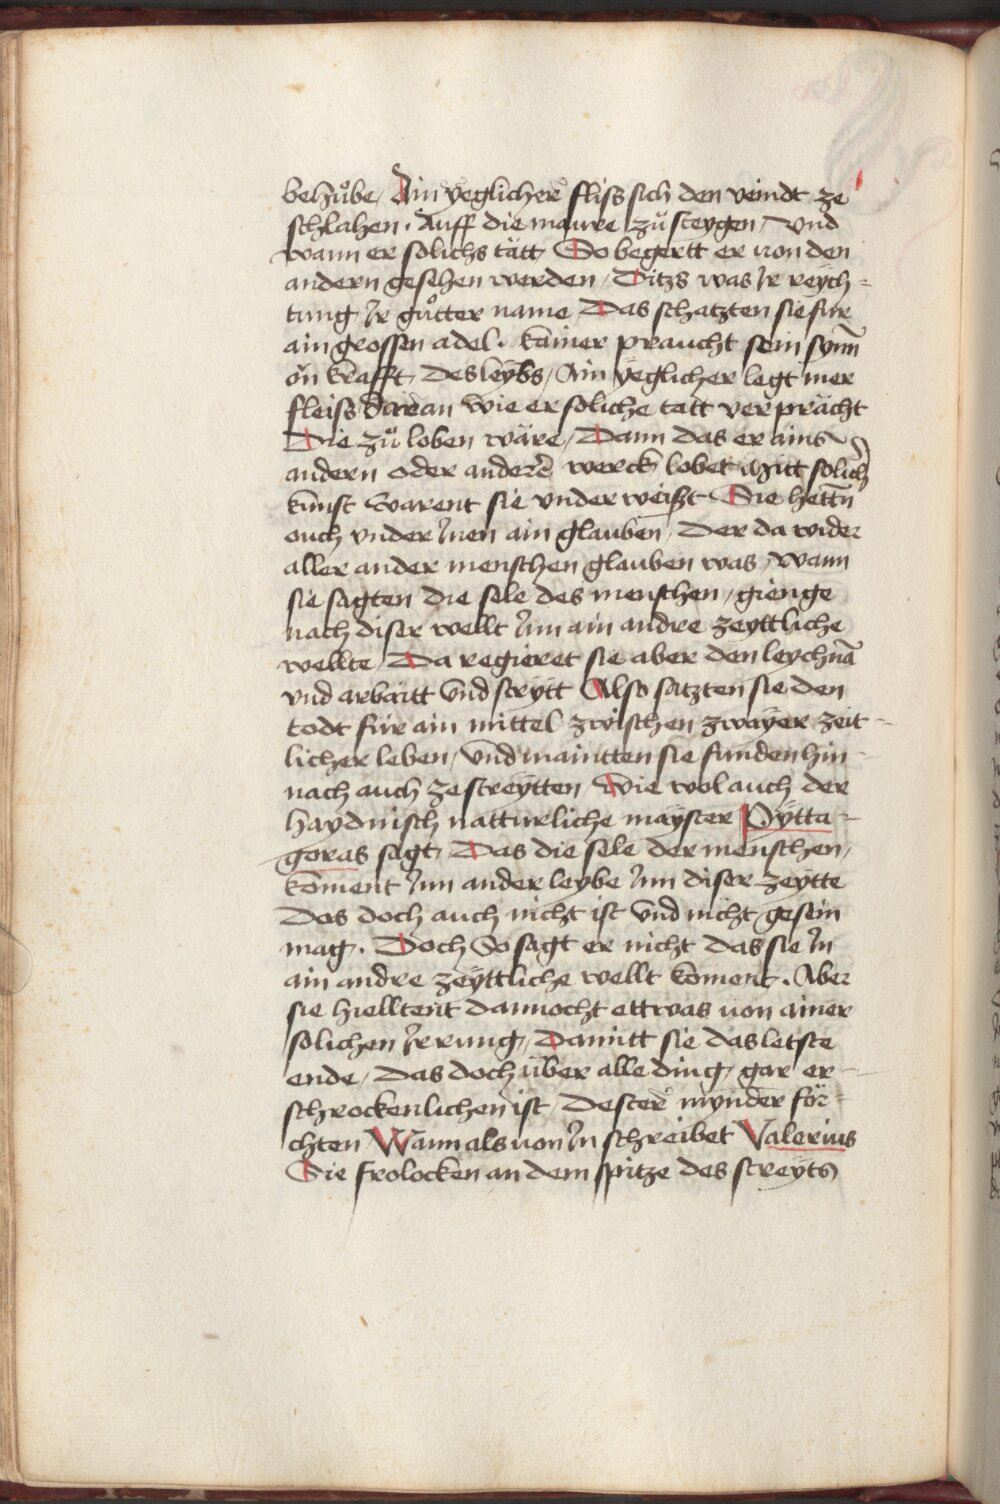 behůbe / Ain yeglicher fliss sich den veindt ze
schlahen · Auff die maure zů steygen / Und
wann er solichs tätt / So begertt er von den
andern gesehen werden / Ditzs was Ir reych-
tung Ir gůtter name / Das schatzten sie fur
ain grossen adel · kainer praucht sein synn̄
on krafft / des leybs / Ain yeglicher legt mer
fleiss daran wie er soliche tatt verprächt
Die zů loben wäre / Dann das er ains
andern oder anderē werck lobet Mitt solich̄
kunst warent sie vnderweiszt Sie hettn̄
ouch vnder Inen ain glauben / Der da wider
aller ander menschen glauben was / wann
sie sagten die sele des menschen / gienge
nach diser wellt Inn ain andre zeyttliche
wellte / Da regieret sie aber den leychnā
vnd arbaitt vnd streytt Also satzten sie den
todt für ain mittel zwischen zwayer zeit-
licher leben / vnd maintten sie funden hin-
nach auch ze streytten Wie wol auch der
haydnisch natturliche mayster Pytta-
goras sagt / Das die sele der menschen /
koment Inn ander leybe Inn diser zeytte
Das doch auch nicht ist vnd nicht gesein
mag · Doch So sagt er nicht das sie In
ain andre zeyttliche wellt koment · Aber
sie hielltent dannocht ettwas von ainer
solichen Irrung / Damitt sie das letste
ende / Das doch über alle ding gar er-
schrockenlichen ist / Dester mynder för-
chten Wann als von In schreibet Valerius
Sie frolocken an dem spitze des streyts